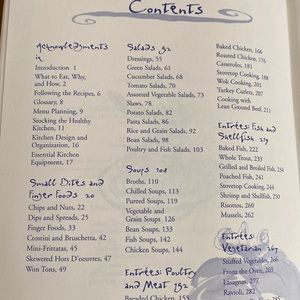 Contents
Acknowledgments
ix
Introduction 1
What to Eat, Why,
and How, 2
Following the Recipes, 6
Glossary, 8
Menu Planning, 9
Stocking the Healthy
Kitchen, 11
Kitchen Design and
Organization, 16
Essential Kitchen
Equipment, 17
Small Bites and
Finger Foods 20
Chips and Nuts, 22
Dips and Spreads, 25
Finger Foods, 33
Crostini and Bruschetta, 42
Mini-Frittatas, 45
Skewered Hors D'oeuvres, 47
Won Tons, 49
Salads 52
Dressings, 55
Green Salads, 61
Cucumber Salads, 68
Tomato Salads, 70
Assorted Vegetable Salads, 73
Slaws, 78
Potato Salads, 82
Pasta Salads, 86
Rice and Grain Salads, 92
Bean Salads, 98
Poultry and Fish Salads, 103
Soups 108
Broths, 110
Chilled Soups, 113
Pureed Soups, 119
Vegetable and
Grain Soups 126
Bean Soups, 133
Fish Soups, 142
Chicken Soups, 144
Entrées: Poultry
and Meat 152
Breaded Chicken, 155
Baked Chicken, 166
Roasted Chicken, 176
Casseroles, 181
Stovetop Cooking, 186
Wok Cooking, 201
Turkey Cutlets, 207
Cooking with
Lean Ground Beef, 211
Entrées: Fish and
Shellfish 219
Baked Fish, 222
Whole Trout, 233
Grilled and Broiled Fish, 234
Poached Fish, 241
Stovetop Cooking, 244
Shrimp and Shellfish, 250
Risottos, 260
Mussels, 262
Entrées:
Vegetarian 264
Stuffed Vegetables, 266
From the Oven, 268
Lasagnas, 277
Ravioli, 282